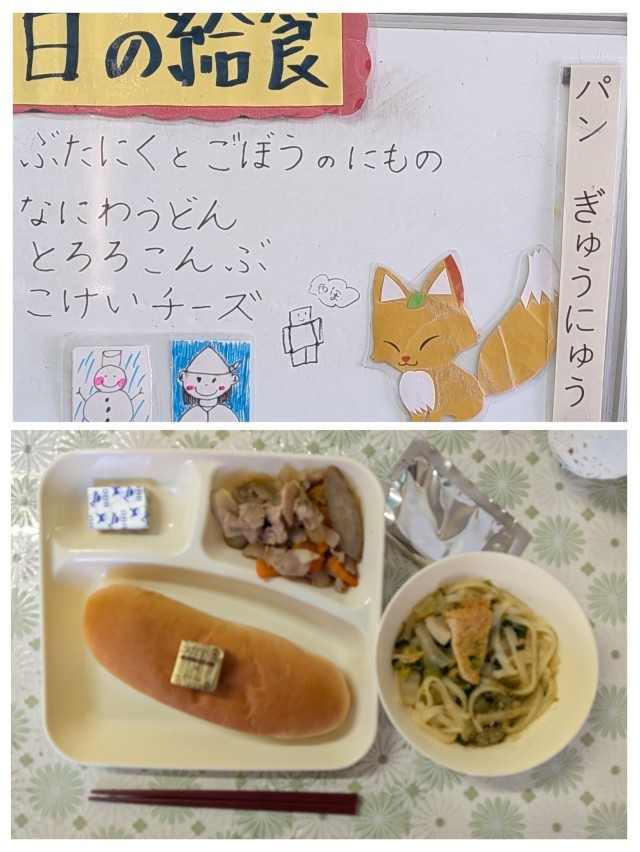 日の給食
ぶたにくとごぼうのにもの
なにわうどん
とろろこんぶ
こけいチーズ
パン ぎゅうにゅう